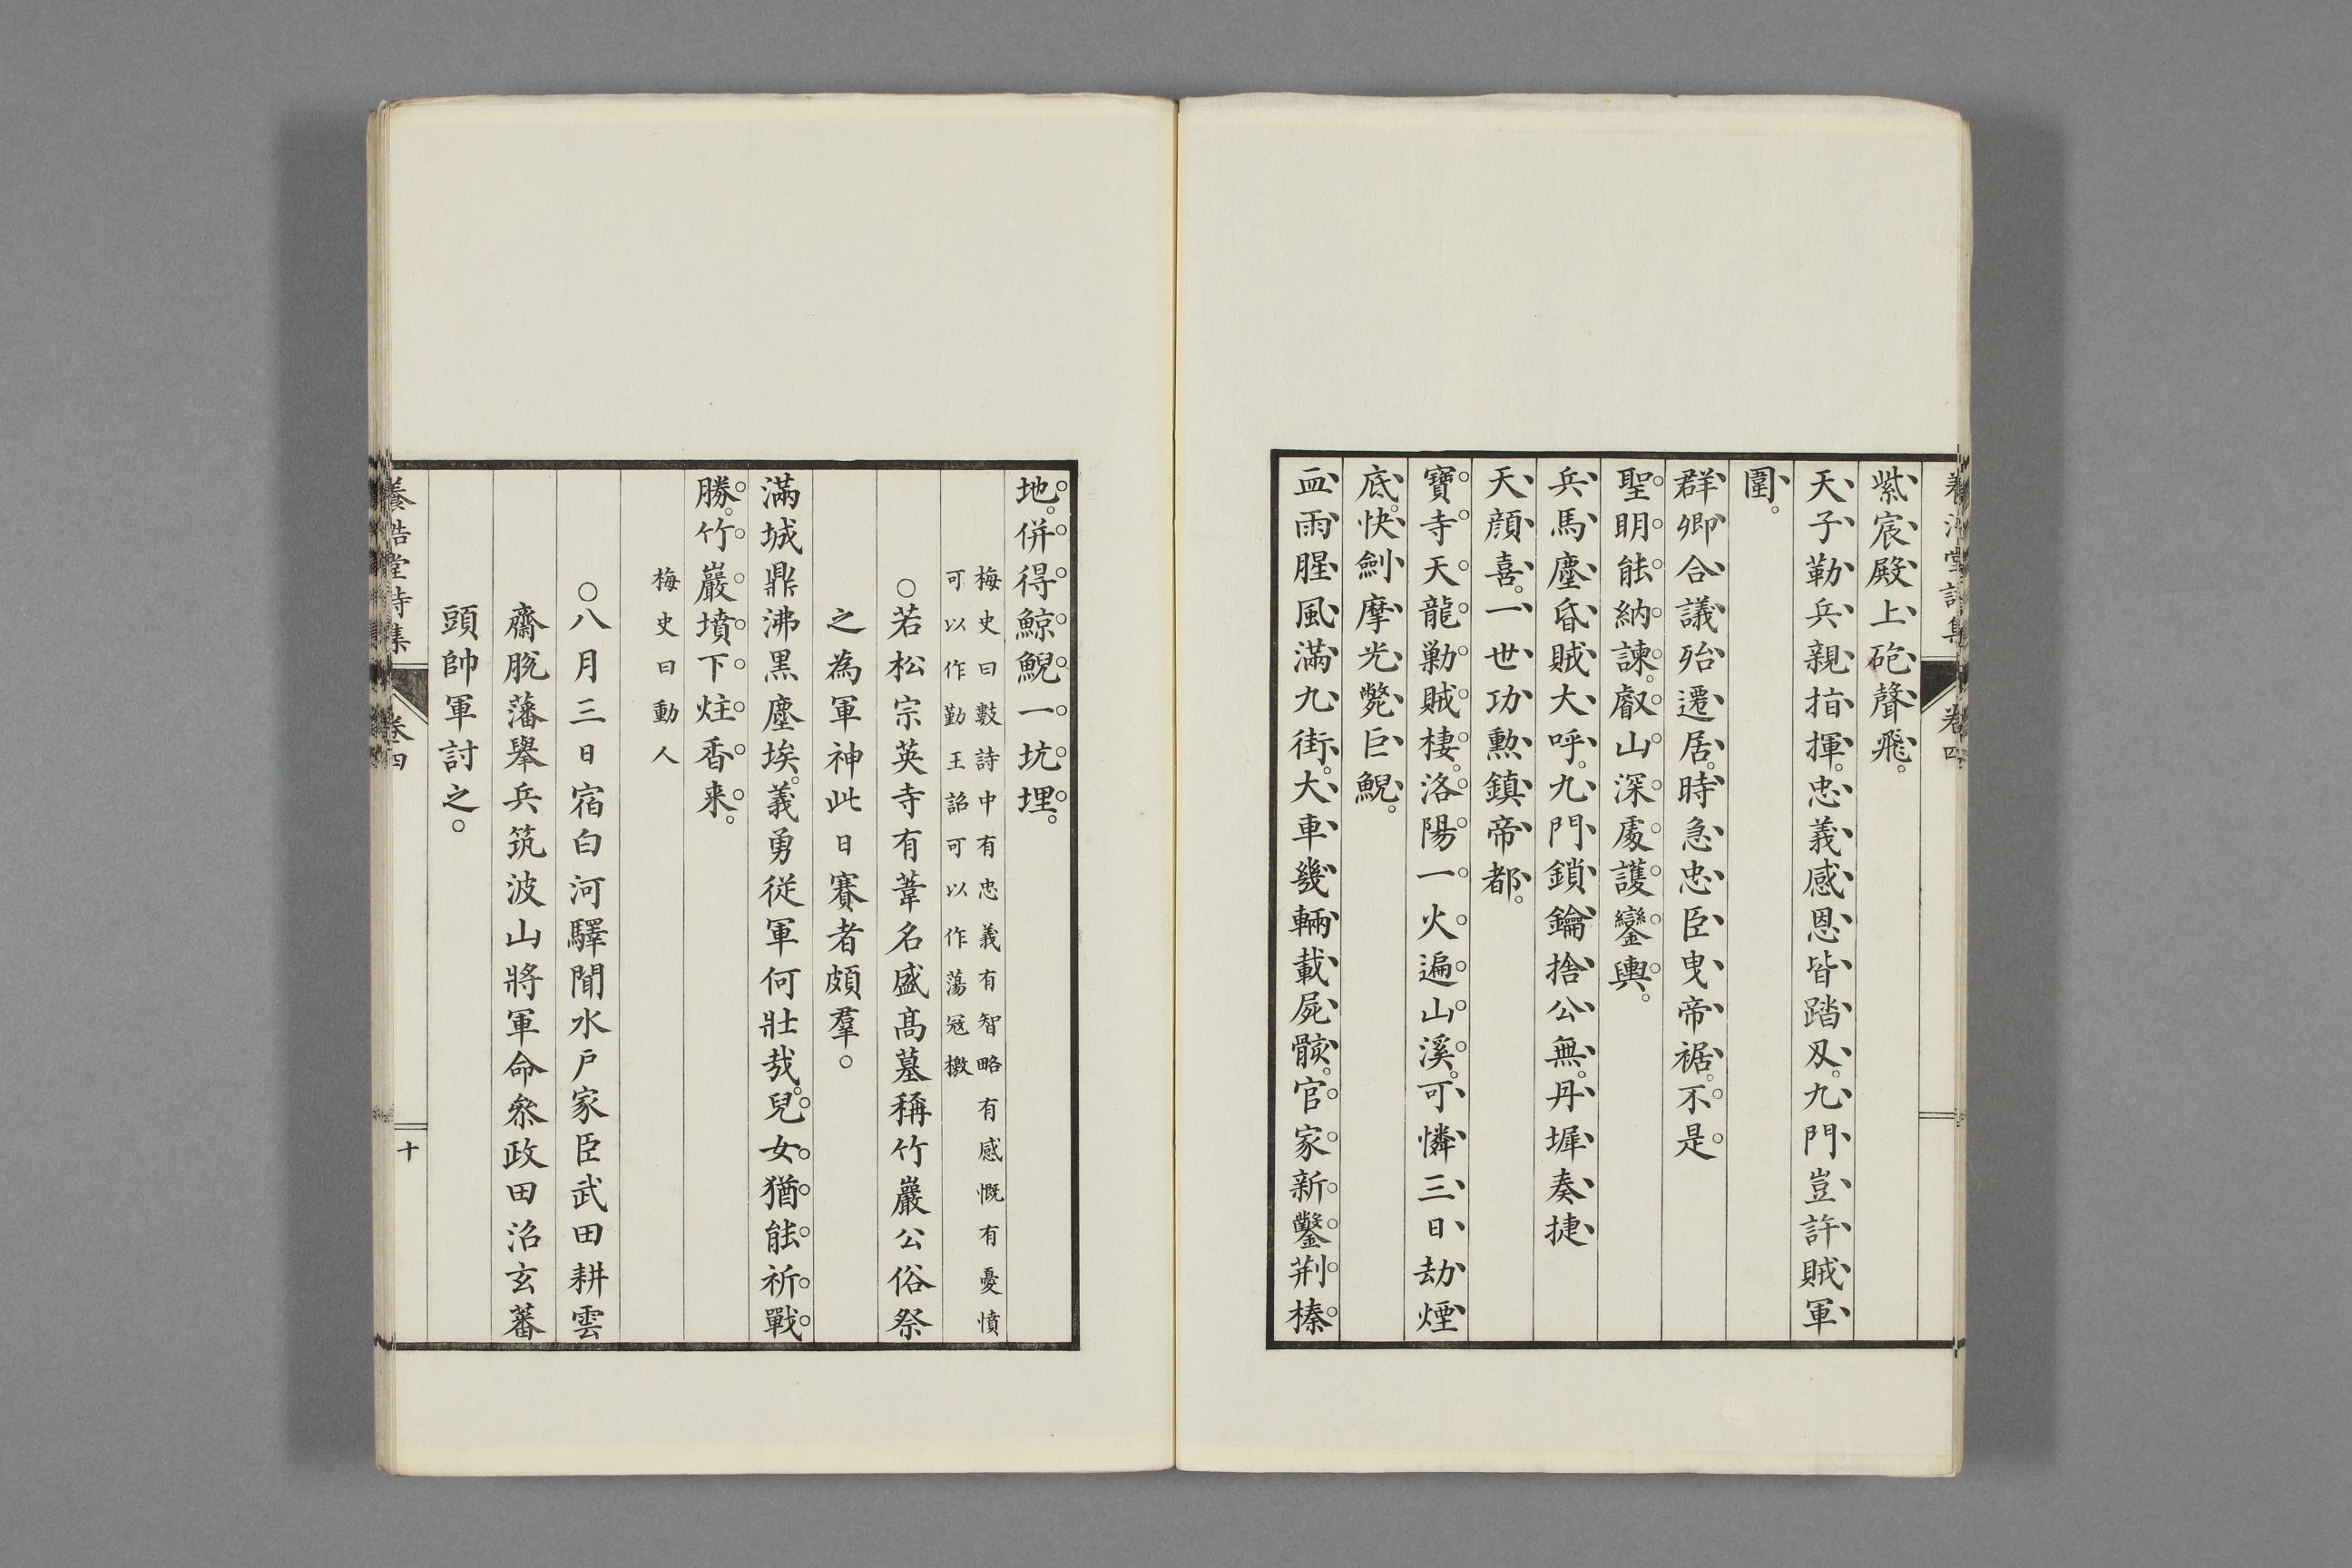 養浩堂詩集 卷四
紫宸殿上砲聲飛。
天子勒兵親指揮。忠義感恩皆踏刃。九門豈許賊軍
圍。
群卿合議殆遷居。時急忠臣曳帝裾。不是
聖明能納諫。叡山深處護鑾輿。
兵馬塵昏賊大呼。九門鎖鑰捨公無。丹墀奏捷
天顏喜。一世功勲鎮帝都。
寶寺天龍勦賊棲。洛陽一火遍山溪。可憐三日劫煙
底。快劍摩光斃巨鯢。
血雨腥風滿九街。大車幾輛載屍骸。官家新鑿荆榛
地。併得鯨鯢一坑埋。
梅史曰數詩中有忠義有智略有感慨有憂憤
可以作勤王詔可以作蕩冦檄
○若松宗英寺有葦名盛髙墓稱竹巖公俗祭
之為軍神此日賽者頗羣。
滿城鼎沸黑塵埃。義勇従軍何壯哉。兒女猶能祈戰
勝。竹巖墳下炷香来。
梅史曰動人
○八月三日宿白河驛聞水戶家臣武田耕雲
齋脫藩擧兵筑波山將軍命叅政田沼玄蕃
頭帥軍討之。
養浩堂詩集 卷四 十